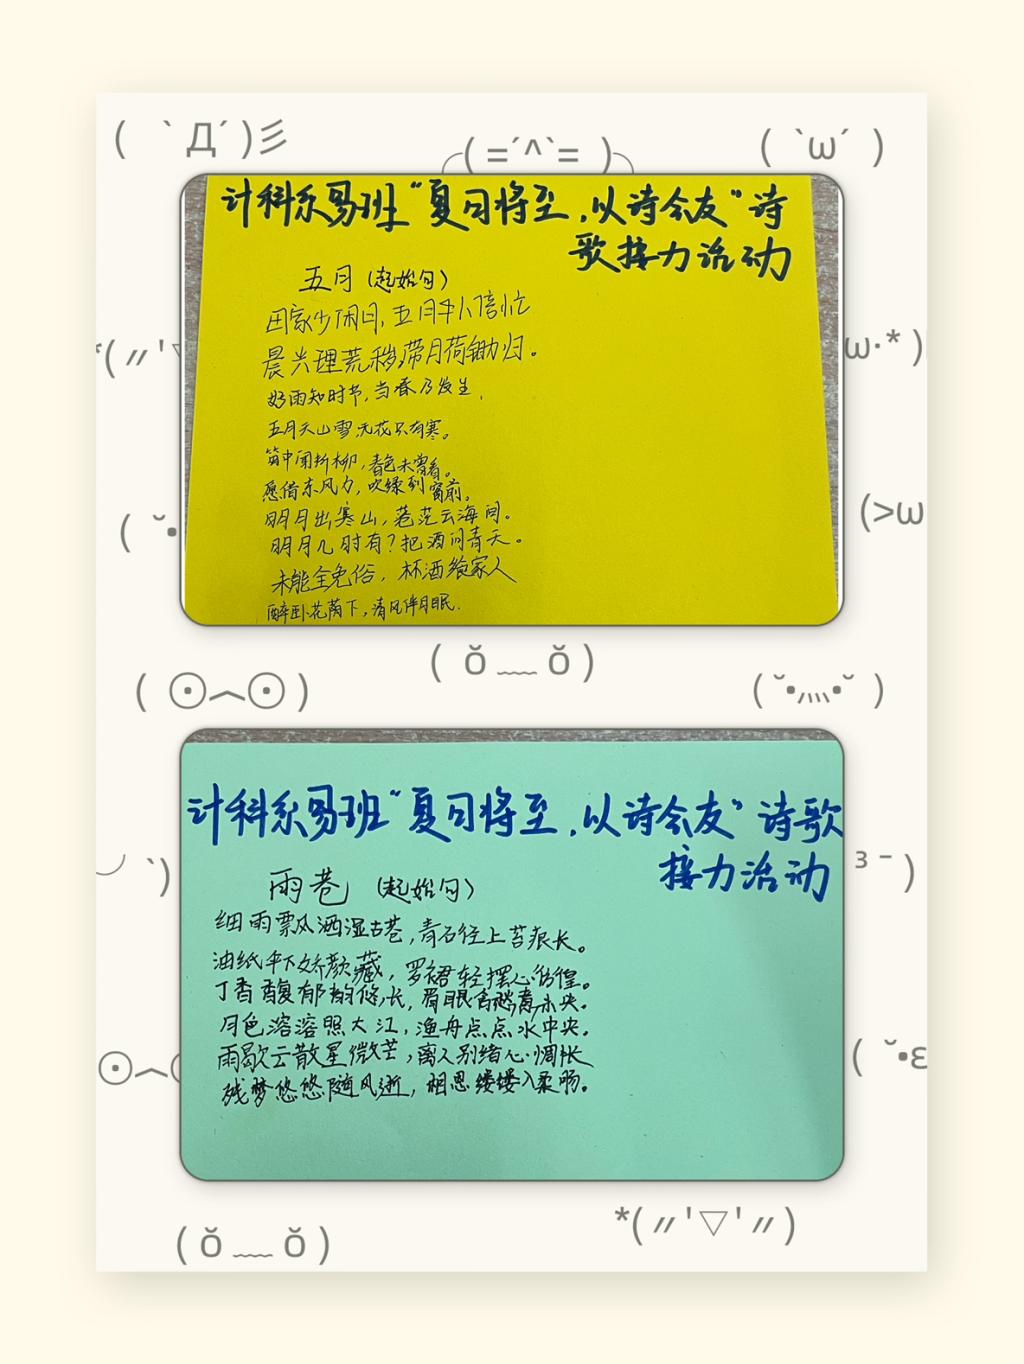 ( `Д´)彡
╭( =´^`= )╮
( `ω´ )
计科系易班“夏习将至，以诗会友”诗
歌接力活动
五月（起始句）
田家少闲日，五月人倍忙
晨兴理荒秽，带月荷锄归。
*(〃'▽
ω·*)
好雨知时节，当春乃发生，
五月天山雪，无花只有寒。
笛中闻折柳，春色未曾看。
愿借东风力，吹绿到窗前。
( ˘•
(>ω
明月出寒山，苍茫云海间。
明月几时有？把酒问青天。
未能全免俗，杯酒飨家人
醉卧花荫下，清风伴月眠.
( ŏ ﹏ ŏ )
( ⊙︿⊙ )
( ˘•灬•˘ )
计科系易班“夏习将至，以诗会友”诗歌
接力活动
雨巷（起始句）
╯`)
³⁻)
细雨飘洒湿古巷，青石径上苔痕长。
油纸伞下娇颜藏，罗裙轻摆心彷徨。
丁香馥郁韵悠长，眉眼含愁意未央。
月色溶溶照大江，渔舟点点水中央。
雨歇云散星微芒，离人别绪心惆怅
残梦悠悠随风逝，相思缕缕入柔肠。
⊙︿
( ˘•ε
( ŏ ﹏ ŏ )
*(〃'▽'〃)